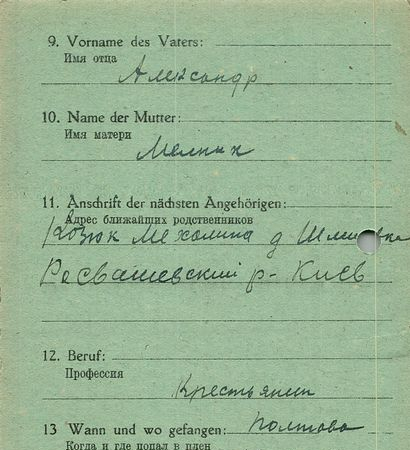 9. Vorname des Vaters:
Имя отца
Александр
10. Name der Mutter:
Имя матери
Мельник
11. Anschrift der nächsten Angehörigen:
Адрес ближайших родственников
Козюк Мехалина д
р- Киев
12. Beruf:
Профессия
Крестьянин
13 Wann und wo gefangen: Полтава
Когда и где попал в плен